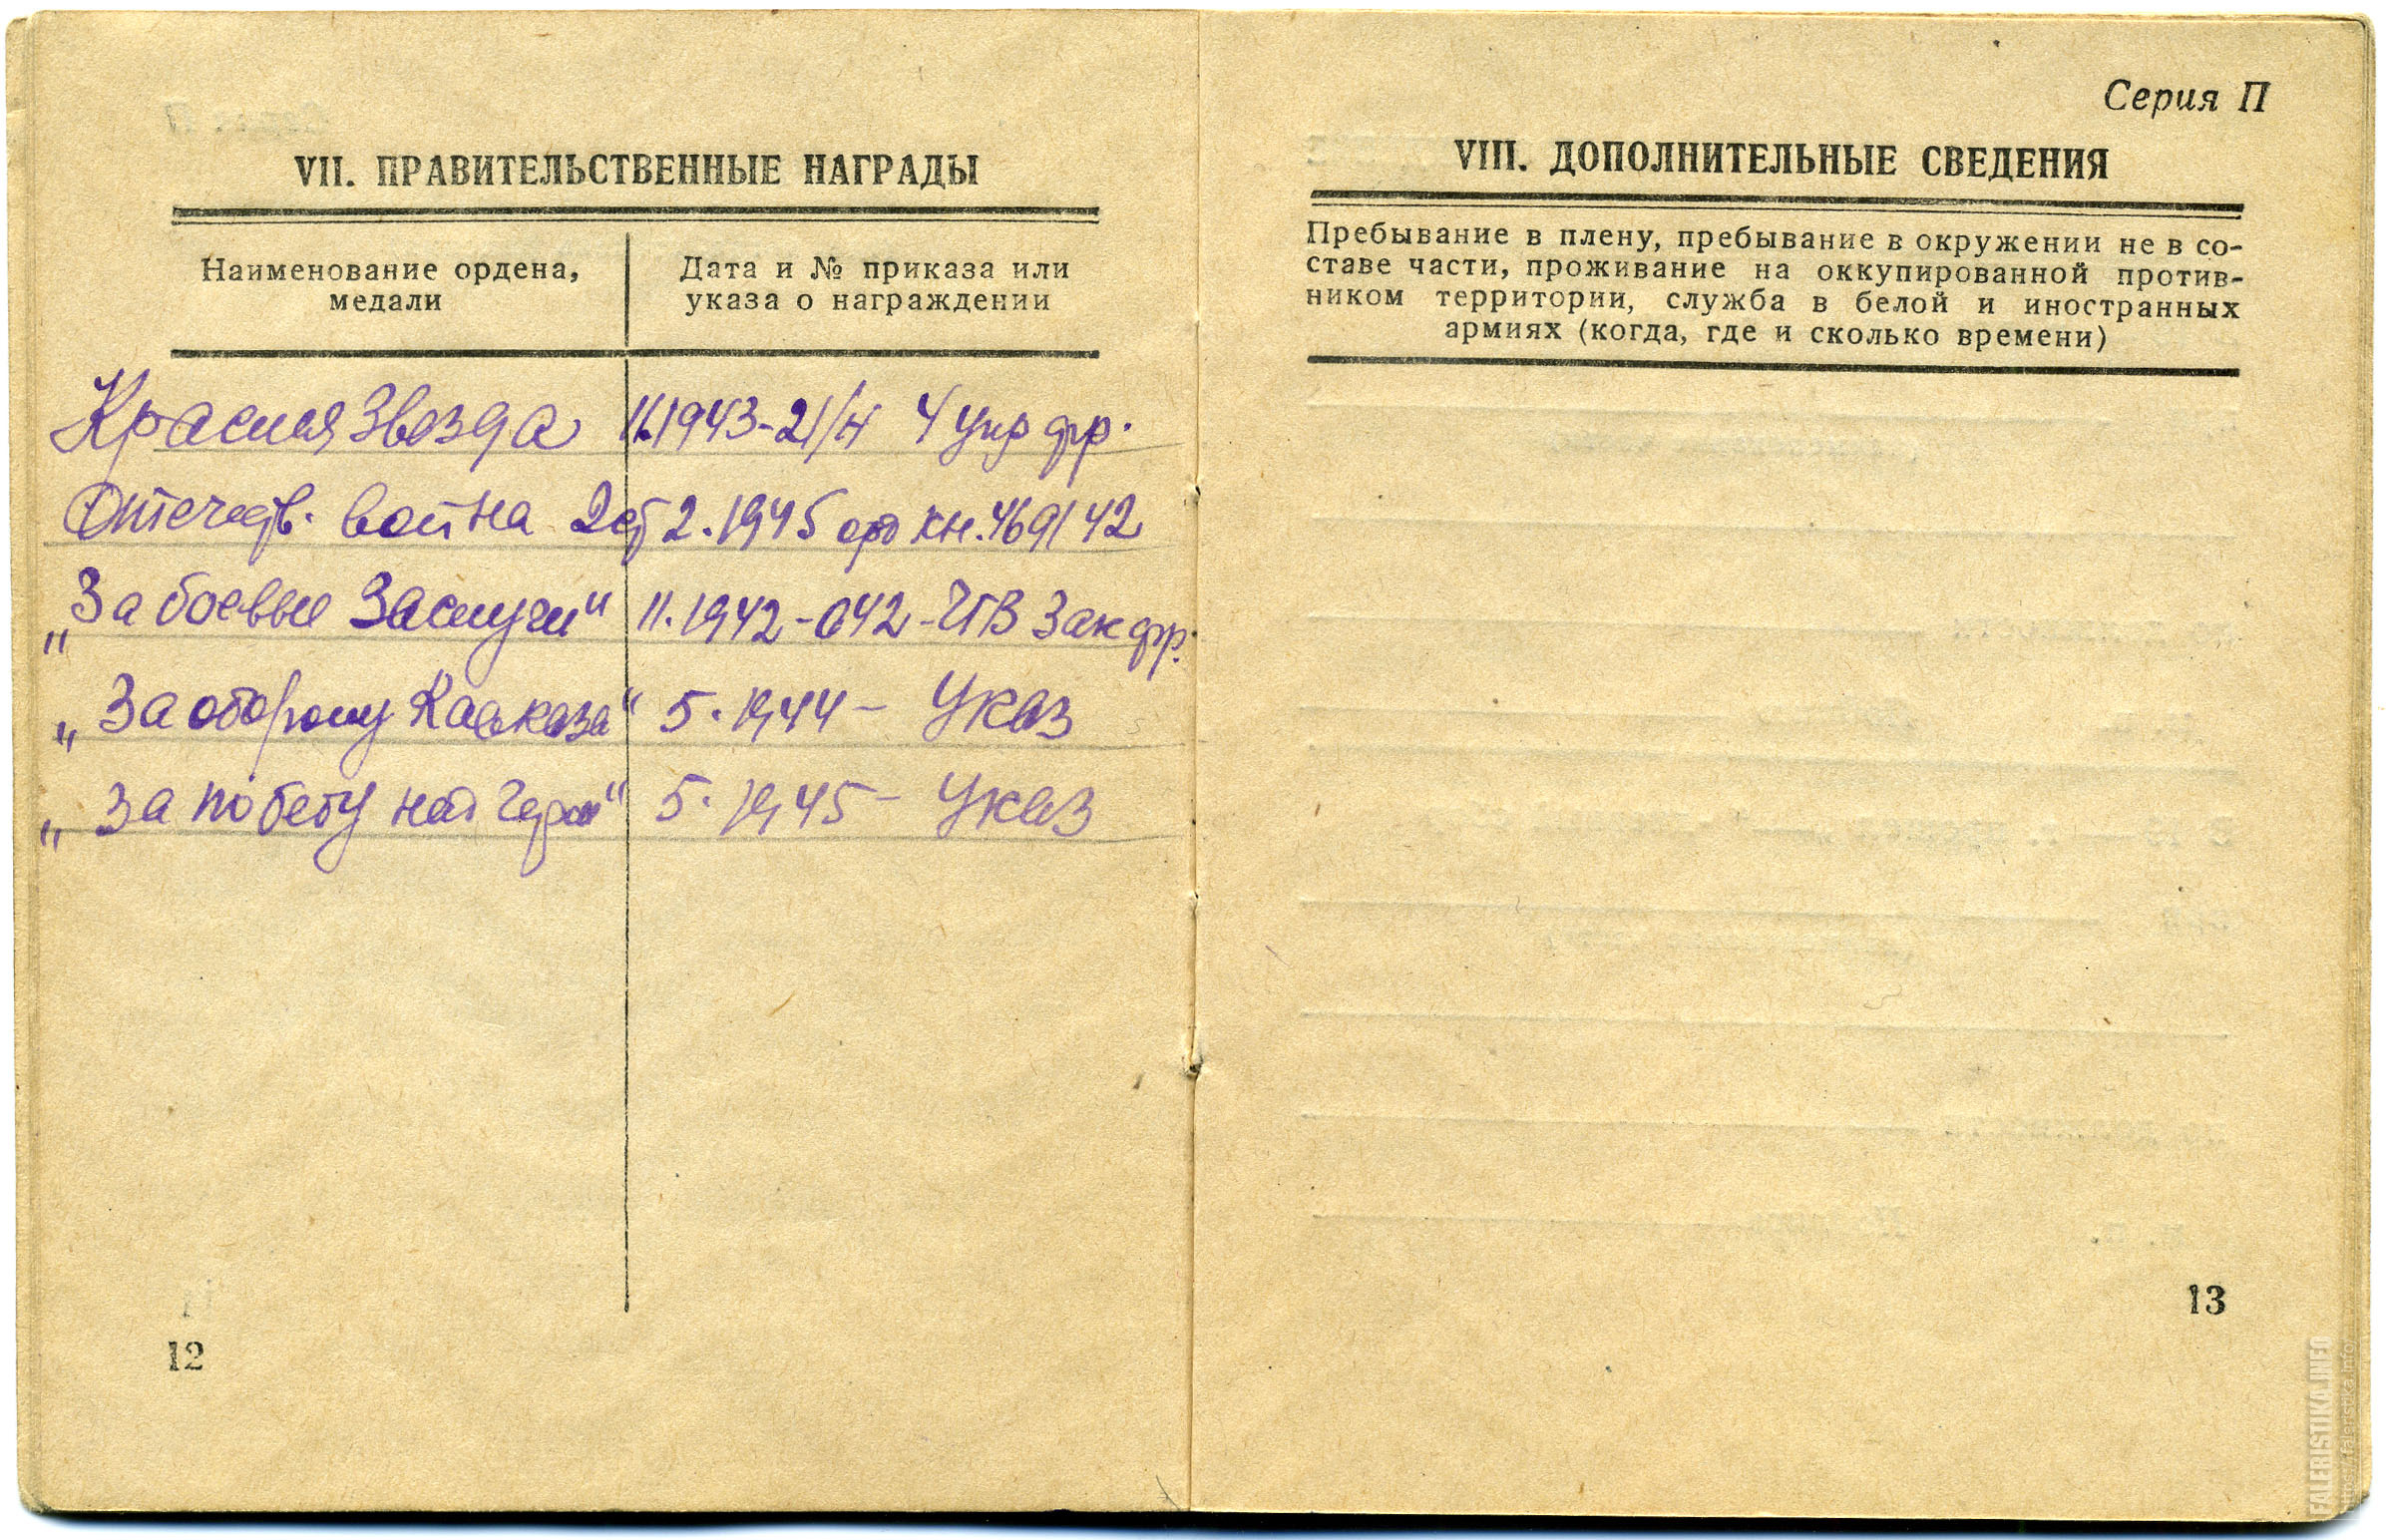 VII. ПРАВИТЕЛЬСТВЕННЫЕ НАГРАДЫ
Наименование ордена,
медали
Дата и № приказа или
указа о награждении
Красная Звезда 11.1943-21/н 4 Укр фр.
Отечеств. война 2 ст 2.1945 орд кн. 469142
„За боевые Заслуги" 11.1942-042-ЧГВ Зак фр.
„За оборону Кавказа" 5.1944- Указ
„За победу над Герм" 5.1945- Указ
12
Серия П
VIII. ДОПОЛНИТЕЛЬНЫЕ СВЕДЕНИЯ
Пребывание в плену, пребывание в окружении не в со-
ставе части, проживание на оккупированной против-
ником территории, служба в белой и иностранных
армиях (когда, где и сколько времени)
13
FALERISTIKA.INFO
https://faleristika.info